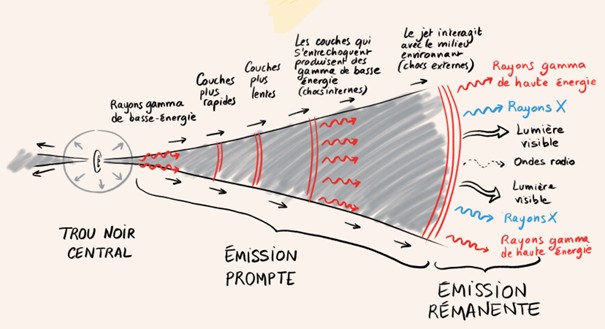 Rayons gamma
de basse-énergie
Couches
plus
rapides
Couches
plus
lentes
Les couches qui
s'entrechoquent
produisent des
gamma de basse
énergie
(chocs internes)
Le jet interagit
avec le milieu
environnant
(chocs externes)
Rayons gamma
de haute énergie
Rayons X
Lumière
visible
Ondes radio
Lumière
visible
Rayons X
Rayons gamma
de haute énergie
TROU NOIR
CENTRAL
ÉMISSION
PROMPTE
ÉMISSION
RÉMANENTE